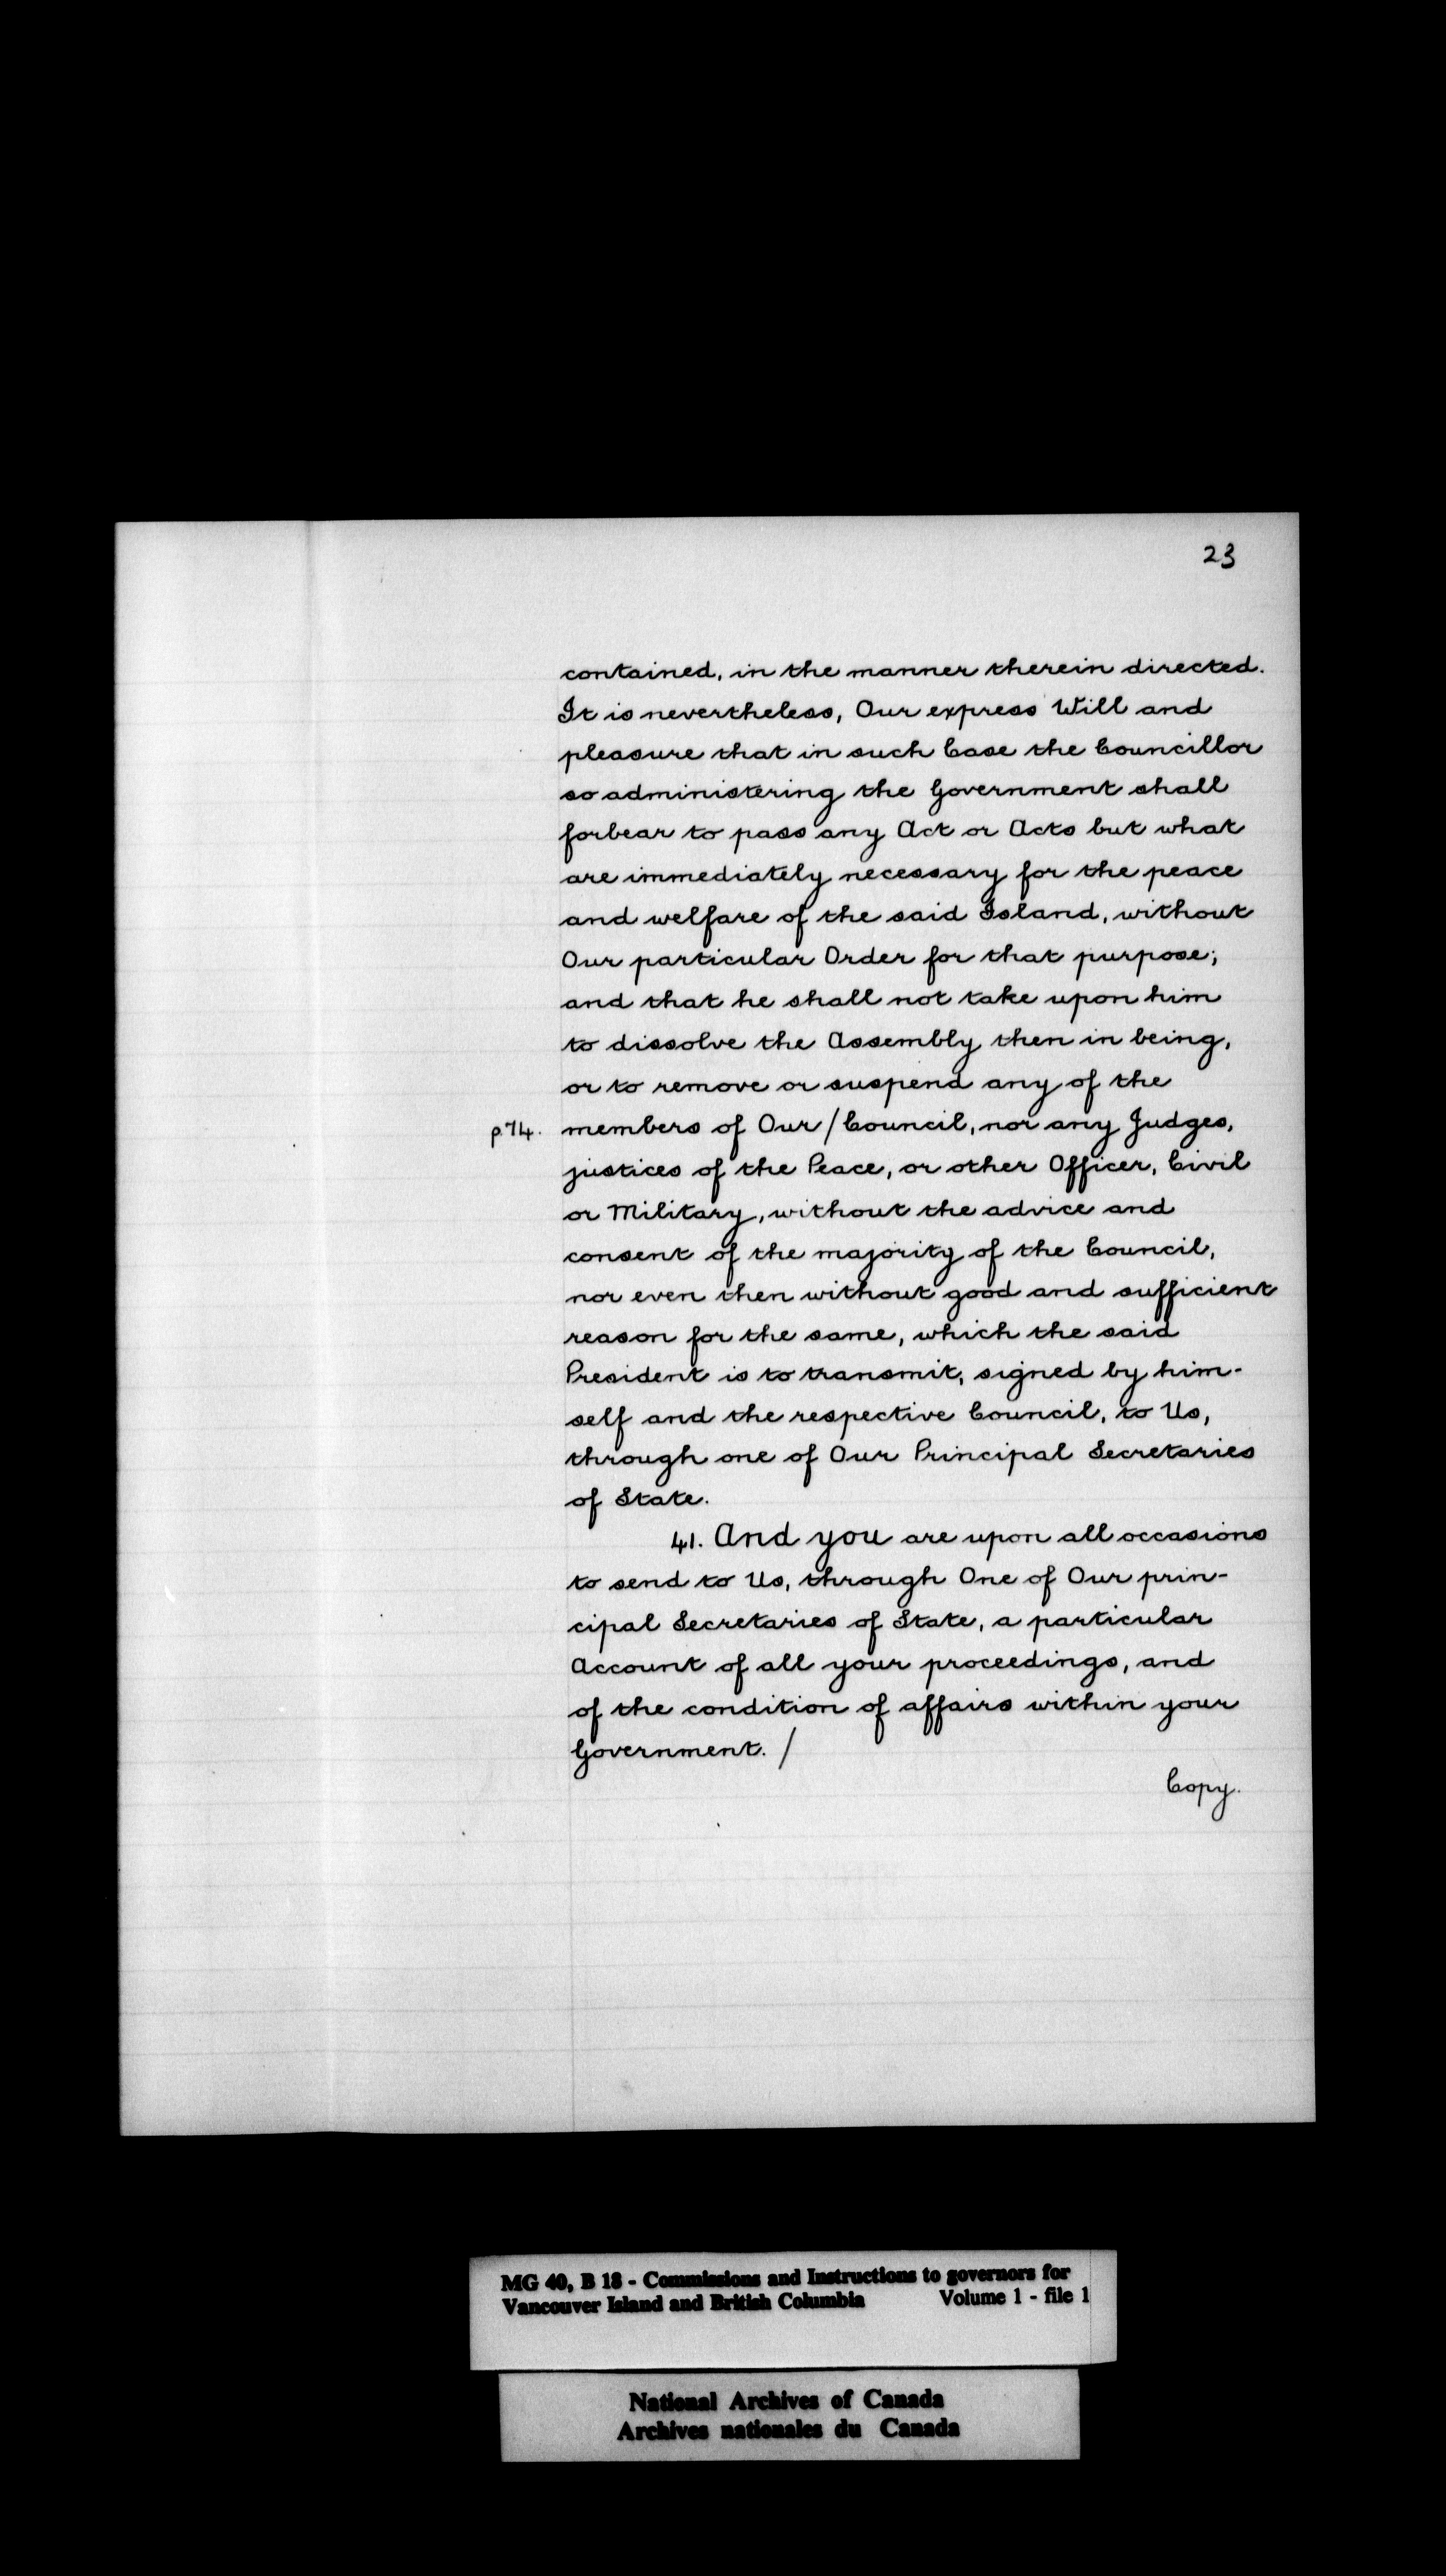 23
contained, in the manner therein directed.
It is nevertheless, Our express Will and
pleasure that in such Case the Councillor
so administering the Government shall
forbear to pass any Act or Acts but what
are immediately necessary for the peace
and welfare of the said Island, without
Our particular Order for that purpose;
and that he shall not take upon him
to dissolve the Assembly then in being,
or to remove or suspend any of the
p.74. members of Our / Council, nor any Judges,
justices of the Peace, or other Officer, Civil
or Military, without the advice and
consent of the majority of the Council,
nor even then without good and sufficient
reason for the same, which the said
President is to transmit, signed by him-
self and the respective Council, to Us,
through one of Our Principal Secretaries
of State.
41. And you are upon all occasions
to send to Us, through One of Our prin-
cipal Secretaries of State, a particular
Account of all your proceedings, and
of the condition of affairs within your
Government. /
Copy.
MG 40, B 18 - Commissions and Instructions to governors for
Vancouver Island and British Columbia Volume 1 - file 1
National Archives of Canada
Archives nationales du Canada